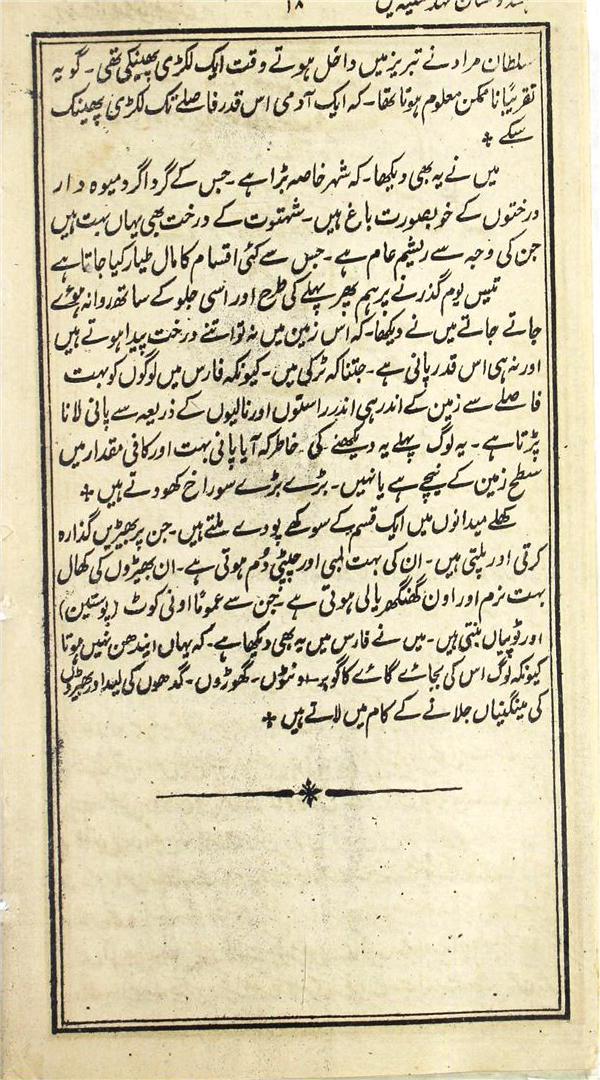 ۱۸
سلطان مراد نے تبریز میں داخل ہوتے وقت ایک لکڑی پھینکی تھی ۔ گو یہ
تقریباً نا ممکن معلوم ہوتا تھا ۔ کہ ایک آدمی اس قدر فاصلے تک لکڑی پھینک
سکے +
میں نے یہ بھی دیکھا ۔ کہ شہر خاصہ بڑا ہے ۔ جس کے گرداگرد میوہ دار
درختوں کے خوبصورت باغ ہیں ۔ شہتوت کے درخت بھی یہاں بہت ہیں
جن کی وجہ سے ریشم عام ہے ۔ جس سے کئی اقسام کا مال طیار کیا جاتا ہے
تیس یوم گذرنے پر ہم پھر پہلے کی طرح اور اسی جلو کے ساتھ روانہ ہوئے
جاتے جاتے میں نے دیکھا ۔ کہ اس زمین میں نہ تو اتنے درخت پیدا ہوتے ہیں
اور نہ ہی اس قدر پانی ہے ۔ جتنا کہ ٹرکی میں ۔ کیونکہ فارس میں لوگوں کو بہت
فاصلے سے زمین کے اندر ہی اندر راستوں اور نالیوں کے ذریعہ سے پانی لانا
پڑتا ہے ۔ یہ لوگ پہلے یہ دیکھنے کی خاطر کہ آیا پانی بہت اور کافی مقدار میں
سطح زمین کے نیچے ہے یا نہیں ۔ بڑے بڑے سوراخ کھودتے ہیں +
کھلے میدانوں میں ایک قسم کے سوکھے پودے ملتے ہیں ۔ جن پر بھیڑیں گذارہ
کرتی اور پلتی ہیں ۔ ان کی بہت لمبی اور چپٹی دُم ہوتی ہے ۔ ان بھیڑوں کی کھال
بہت نرم اور اون گھنگھریالی ہوتی ہے ۔ جن سے عموماً اونی کوٹ (پوستین)
اور ٹوپیاں بنتی ہیں ۔ میں نے فارس میں یہ بھی دیکھا ہے ۔ کہ یہاں ایندھن نہیں ہوتا
کیونکہ لوگ اس کی بجائے گائے کا گوبر ۔ اونٹوں ۔ گھوڑوں ۔ گدھوں کی لید اور بھیڑوں
کی مینگنیاں جلانے کے کام میں لاتے ہیں +